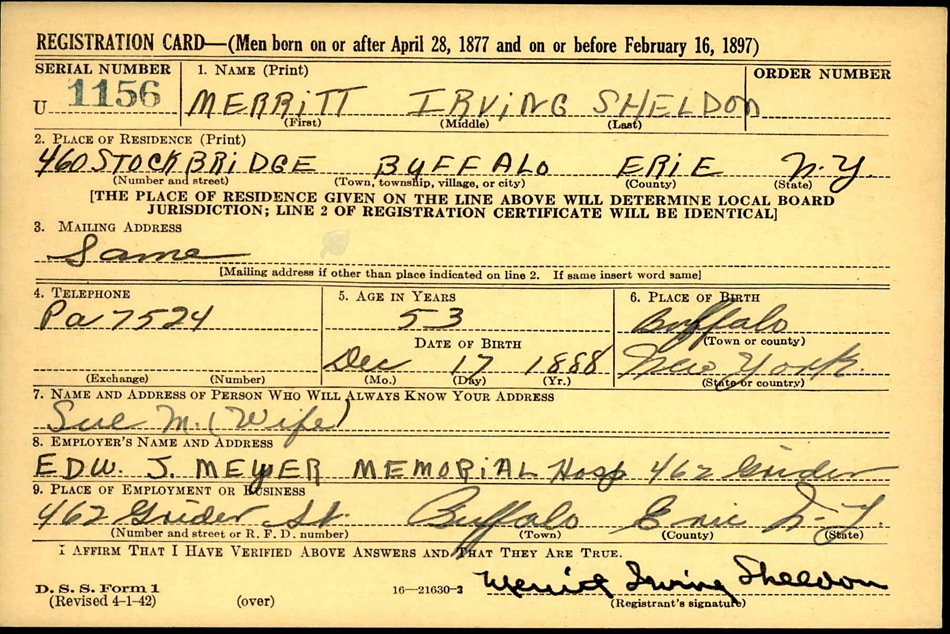 REGISTRATION CARD—(Men born on or after April 28, 1877 and on or before February 16, 1897)
SERIAL NUMBER 1. NAME (Print) ORDER NUMBER
U 1156 MERRITT IRVING SHELDON
(First) (Middle) (Last)
2. PLACE OF RESIDENCE (Print)
460 STOCKBRIDGE BUFFALO ERIE N.Y.
(Number and street) (Town, township, village, or city) (County) (State)
[THE PLACE OF RESIDENCE GIVEN ON THE LINE ABOVE WILL DETERMINE LOCAL BOARD
JURISDICTION; LINE 2 OF REGISTRATION CERTIFICATE WILL BE IDENTICAL]
3. MAILING ADDRESS
Same
[Mailing address if other than place indicated on line 2. If same insert word same]
4. TELEPHONE 5. AGE IN YEARS 6. PLACE OF BIRTH
Pa 7524 53 Buffalo
DATE OF BIRTH (Town or county)
Dec 17 1888 New York.
(Exchange) (Number) (Mo.) (Day) (Yr.) (State or country)
7. NAME AND ADDRESS OF PERSON WHO WILL ALWAYS KNOW YOUR ADDRESS
Sue M. (Wife)
8. EMPLOYER'S NAME AND ADDRESS
EDW. J. MEYER MEMORIAL Hosp 462 Grider
9. PLACE OF EMPLOYMENT OR BUSINESS
462 Grider St. Buffalo Erie N.Y.
(Number and street or R. F. D. number) (Town) (County) (State)
I AFFIRM THAT I HAVE VERIFIED ABOVE ANSWERS AND THAT THEY ARE TRUE.
Merritt Irving Sheldon
D. S. S. Form 1 16—21630-2
(Revised 4-1-42) (over) (Registrant's signature)